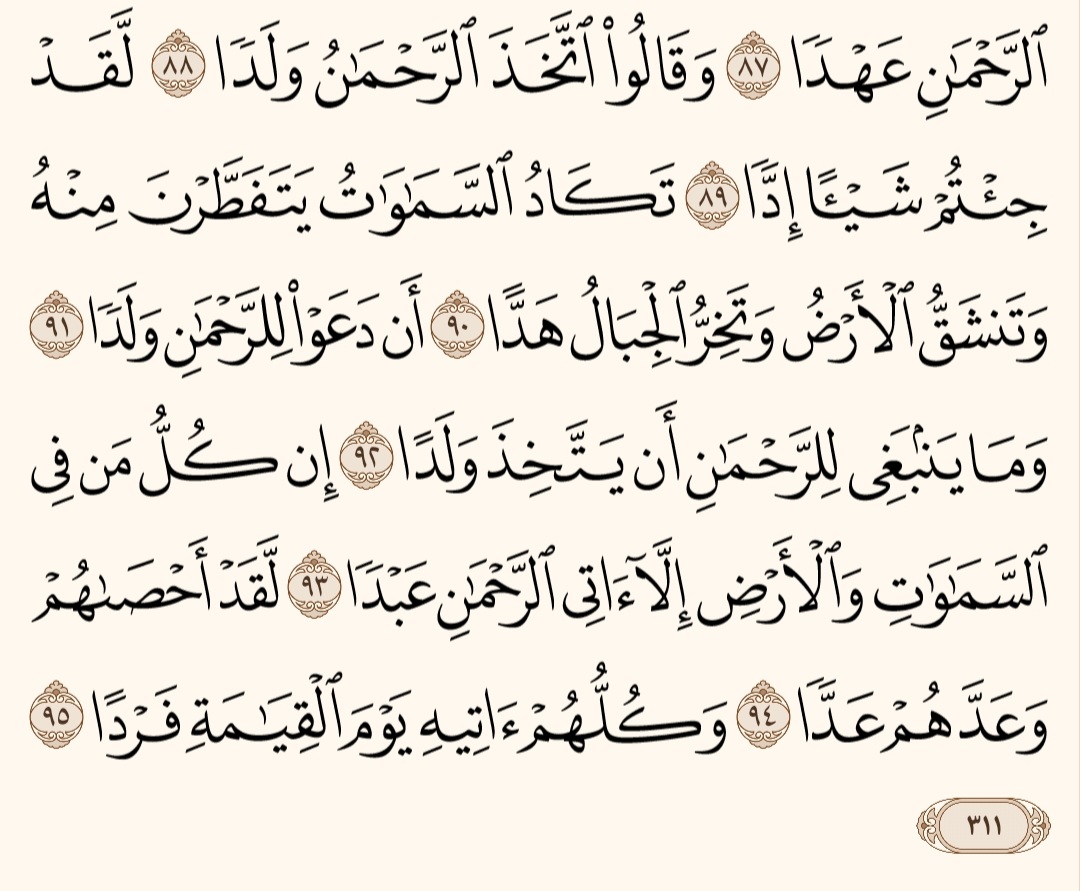 ٱلرَّحْمَٰنِ عَهْدًا ٨٧ وَقَالُوا۟ ٱتَّخَذَ ٱلرَّحْمَٰنُ وَلَدًا ٨٨ لَّقَدْ
جِئْتُمْ شَيْـًٔا إِدًّا ٨٩ تَكَادُ ٱلسَّمَٰوَٰتُ يَتَفَطَّرْنَ مِنْهُ
وَتَنشَقُّ ٱلْأَرْضُ وَتَخِرُّ ٱلْجِبَالُ هَدًّا ٩٠ أَن دَعَوْا۟ لِلرَّحْمَٰنِ وَلَدًا ٩١
وَمَا يَنۢبَغِى لِلرَّحْمَٰنِ أَن يَتَّخِذَ وَلَدًا ٩٢ إِن كُلُّ مَن فِى
ٱلسَّمَٰوَٰتِ وَٱلْأَرْضِ إِلَّآ ءَاتِى ٱلرَّحْمَٰنِ عَبْدًا ٩٣ لَّقَدْ أَحْصَىٰهُمْ
وَعَدَّهُمْ عَدًّا ٩٤ وَكُلُّهُمْ ءَاتِيهِ يَوْمَ ٱلْقِيَٰمَةِ فَرْدًا ٩٥
٣١١